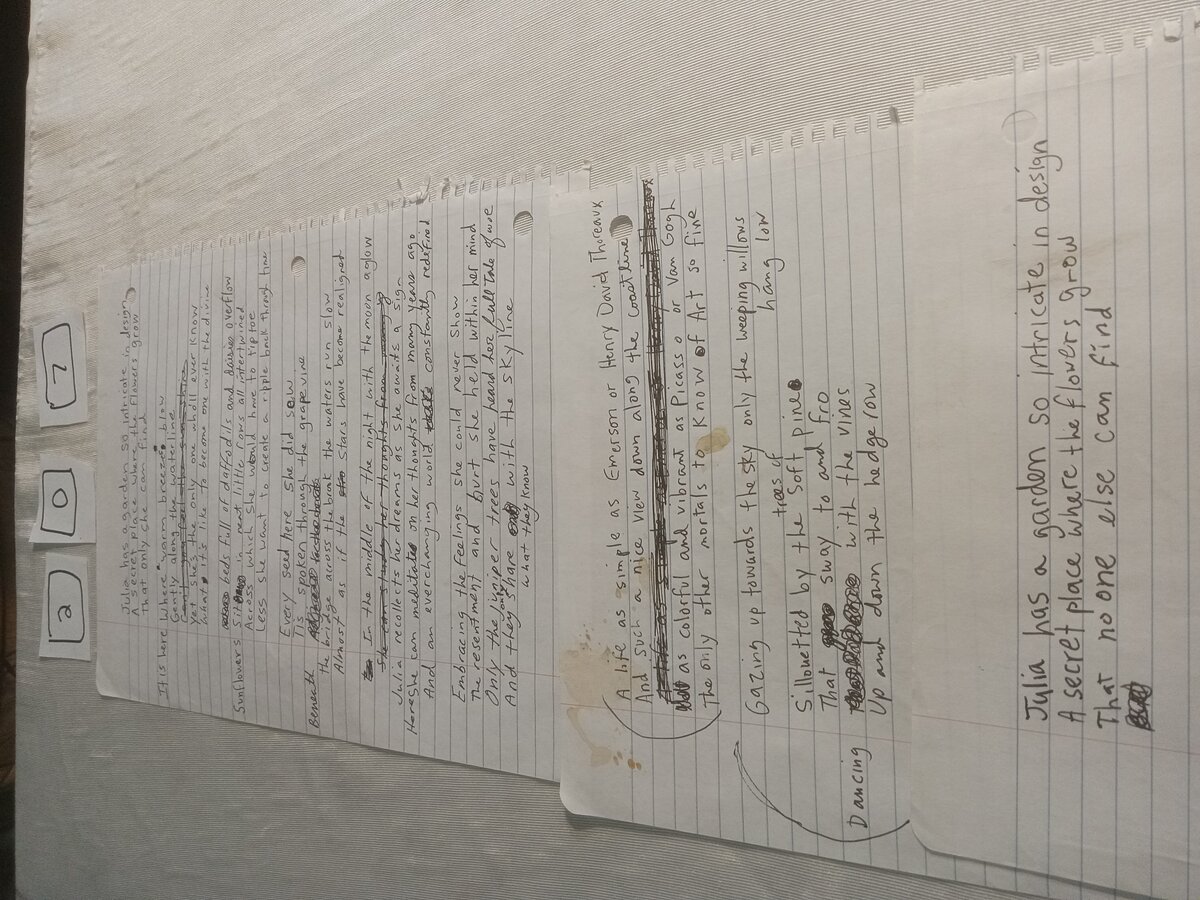 2
0
7
Julia has a garden so intricate in design
A secret place where the flowers grow
That only she can find
It is here where warm breezes blow
Gently along the waterline
Yet she's the only one who'll ever know
What it's like to become one with the divine
beds full of daffodils and daisies overflow
Sunflowers sit in neat little rows all intertwined
Across which she would have to tiptoe
Less she want to create a ripple back through time
Every seed here she did sow
Is spoken through the grapevine
Beneath the bridge across the break the waters run slow
Almost as if the stars have become realigned
In the middle of the night with the moon aglow
She can study her thoughts from
Julia recollects her dreams as she awaits a sign
Here she can meditate on her thoughts from many years ago
And an everchanging world constantly redefined
Embracing the feelings she could never show
The resentment and hurt she held within her mind
Only the juniper trees have heard her full tale of woe
And they share with the skyline
what they know
A life as simple as Emerson or Henry David Thoreaux
And such a nice view down along the coastline
as colorful and vibrant as Picasso or Van Gogh
The only other mortals to know of Art so fine
Gazing up towards the sky only the weeping willows
hang low
trees of
Sillouetted by the soft pine
That sway to and fro
Dancing with the vines
Up and down the hedgerow
Julia has a garden so intricate in design
A secret place where the flowers grow
That no one else can find